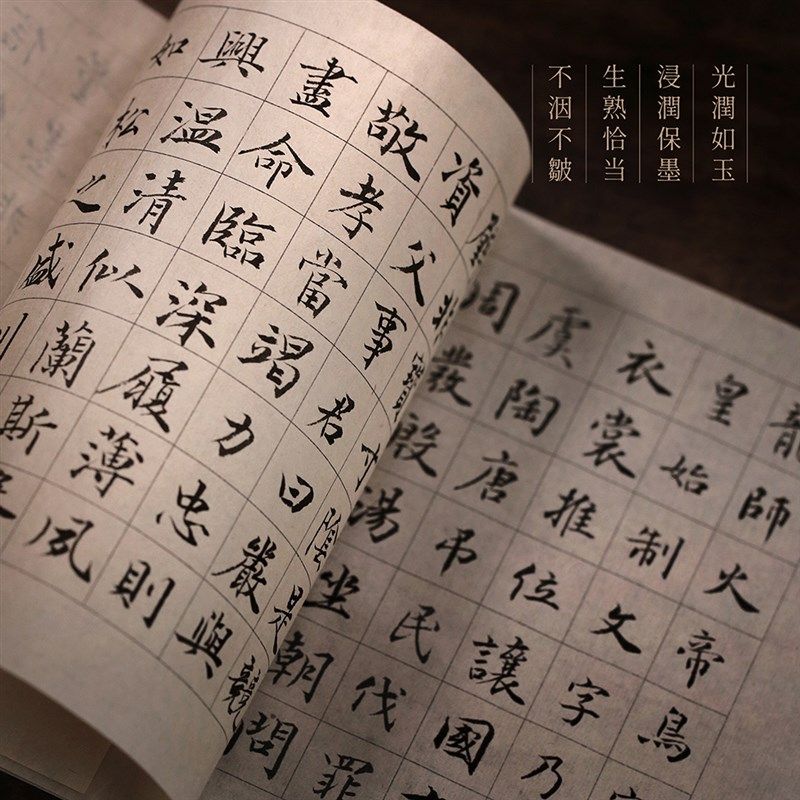 光潤如玉
浸潤保墨
生熟恰当
不洇不皺
龍師火帝鳥
皇始制文字乃
衣裳推位讓國
虞陶唐吊民伐罪
周發殷湯坐朝問
寸陰是競
資父事君曰嚴與
敬孝當竭力忠則
盡命臨深履薄夙
興温清似蘭斯
如松之盛川